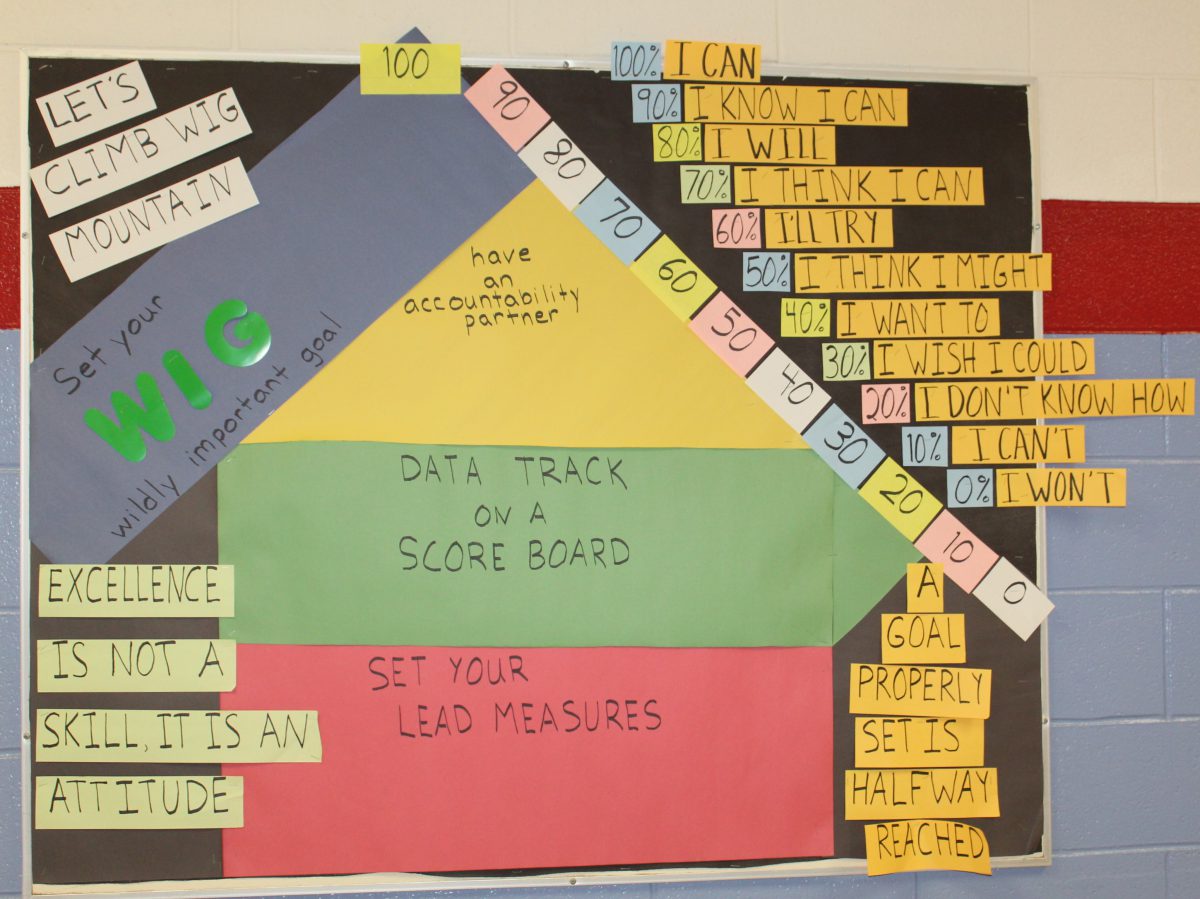 LET'S
CLIMB WIG
MOUNTAIN
Set your
WIG
wildly important goal
have
an
accountability
partner
DATA TRACK
ON A
SCORE BOARD
SET YOUR
LEAD MEASURES
EXCELLENCE
IS NOT A
SKILL, IT IS AN
ATTITUDE
100
90
80
70
60
50
40
30
20
10
0
100% I CAN
90% I KNOW I CAN
80% I WILL
70% I THINK I CAN
60% I'LL TRY
50% I THINK I MIGHT
40% I WANT TO
30% I WISH I COULD
20% I DON'T KNOW HOW
10% I CAN'T
0% I WON'T
A
GOAL
PROPERLY
SET IS
HALFWAY
REACHED